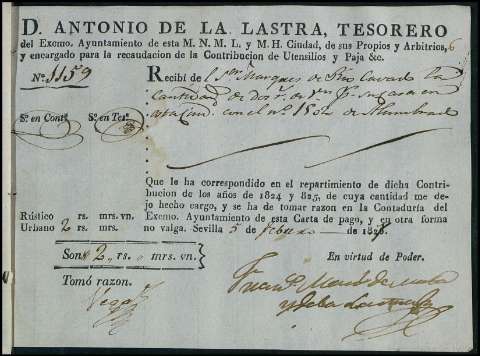 D. ANTONIO DE LA LASTRA, TESORERO
del Excmo. Ayuntamiento de esta M. N. M. L. y M. H. Ciudad, de sus Propios y Arbitrios,
y encargado para la recaudacion de la Contribucion de Utensilios y Paja &c.
N.º 1159
Recibí de l Sr Marques de
cantidad de dos r.s de v.n su casa en
con el n.º de Alumbrado
S.n en Cont.a S.n en Tes.a
Que le ha correspondido en el repartimiento de dicha Contri-
bucion de los años de 1824 y 825, de cuya cantidad me de-
jo hecho cargo, y se ha de tomar razon en la Contaduría del
Rústico rs. mrs. vn. Excmo. Ayuntamiento de esta Carta de pago, y en otra forma
Urbano 2 rs. mrs. no valga. Sevilla 5 de febrero de 182
Son 2 rs. mrs. vn. En virtud de Poder.
Tomó razon.
Vega